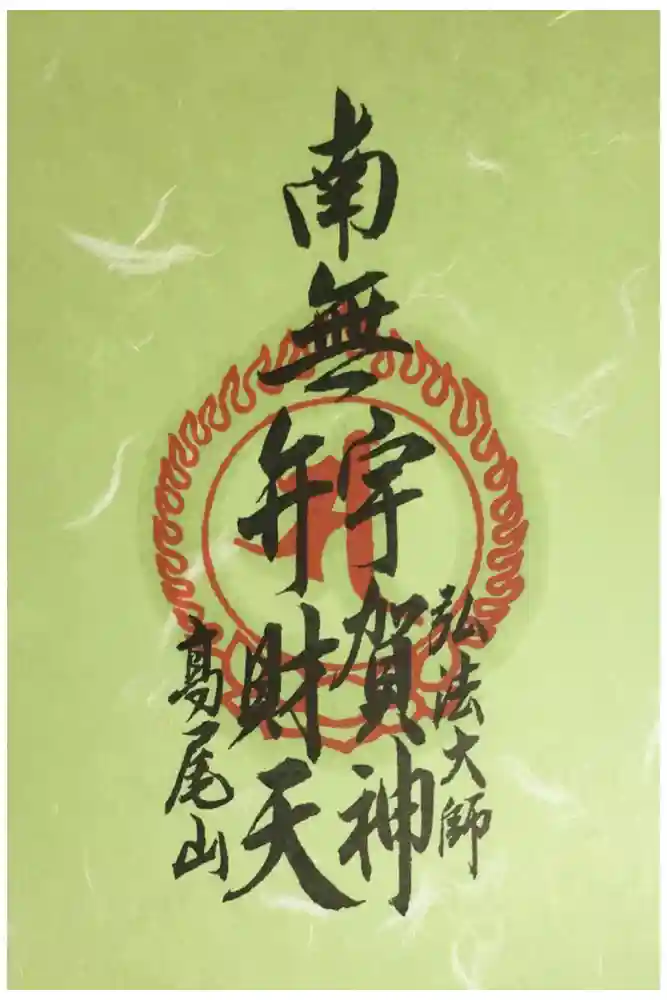 南無
宇賀神
弁財天
弘法大師
髙尾山